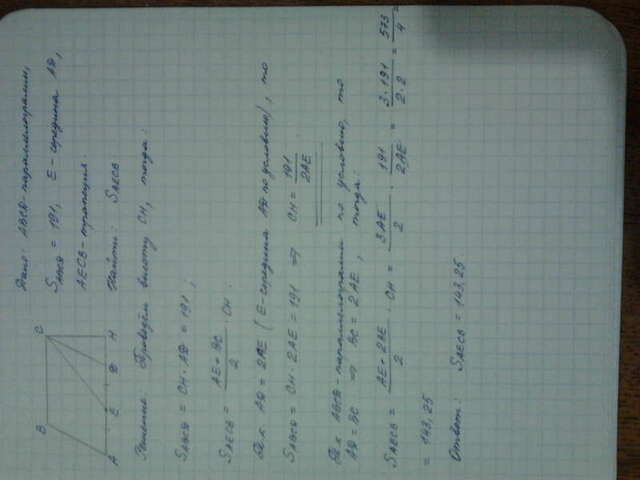 Дано: ABCD-параллелограмм,
S_ABCD = 191, E-середина AD,
AECB-трапеция.
Найти: S_AECB
B C
A E D H
Решение: Проведём высоту CH, тогда:
S_ABCD = CH · AD = 191;
S_AECB = (AE + BC)/2 · CH.
Т.к AD = 2AE (E-середина AD по условию), то
S_ABCD = CH · 2AE = 191 ⇒ CH = 191/2AE
Т.к ABCD-параллелограмм по условию, то
AD = BC ⇒ BC = 2AE, тогда:
S_AECB = (AE + 2AE)/2 · CH = 3AE/2 · 191/2AE = 3·191/2·2 = 573/4 =
= 143,25
Ответ: S_AECB = 143,25